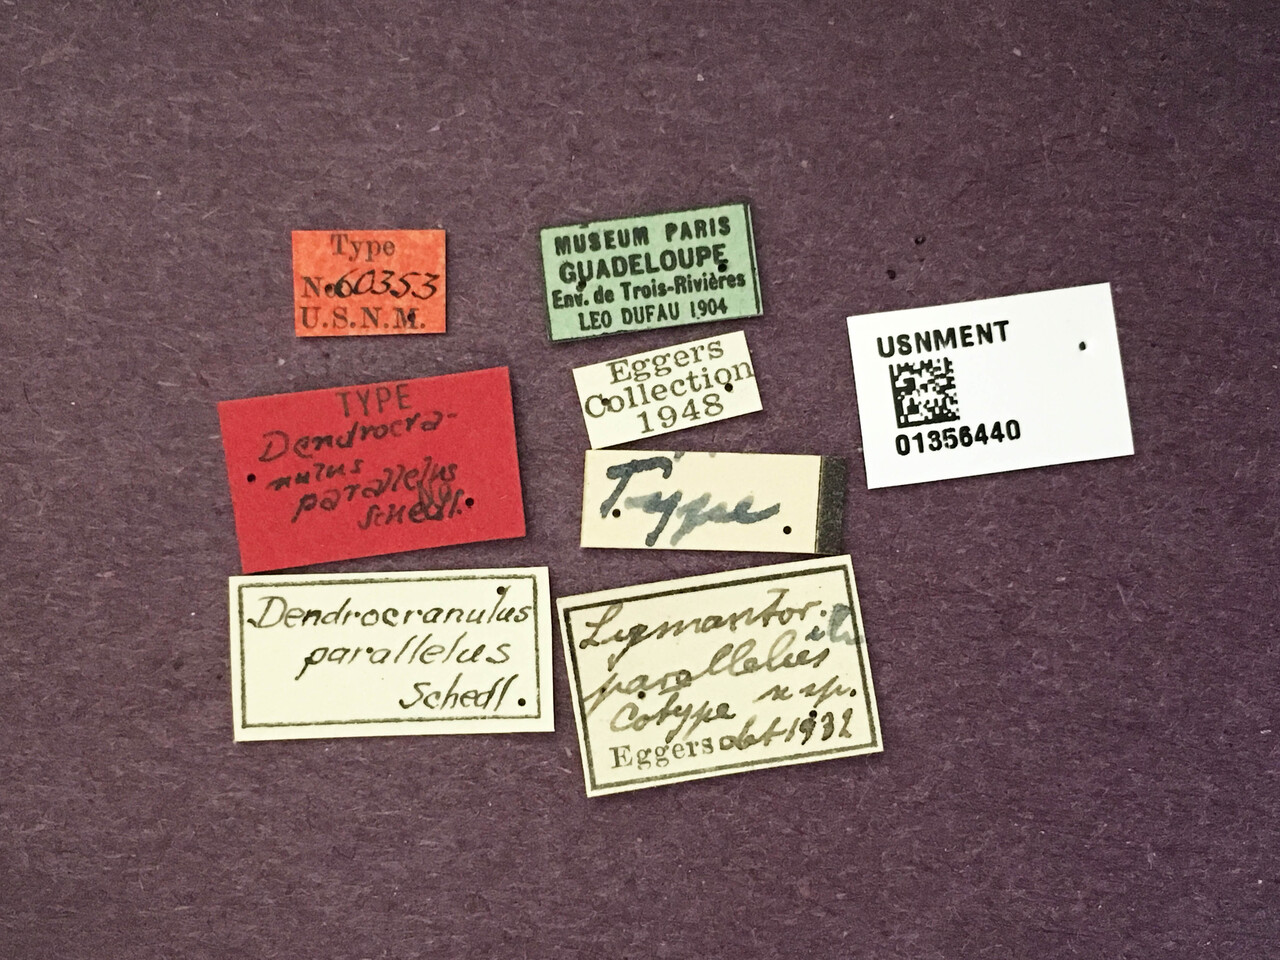 Type
No 60353
U.S.N.M.
MUSEUM PARIS
GUADELOUPE
Env. de Trois-Rivières
LEO DUFAU 1904
USNMENT
01356440
Eggers
Collection
1948
TYPE
Dendrocra-
nulus
parallelus
Schedl.
Type
Dendrocranulus
parallelus
Schedl.
parallelus
n sp.
Cotype
Eggers det 1932